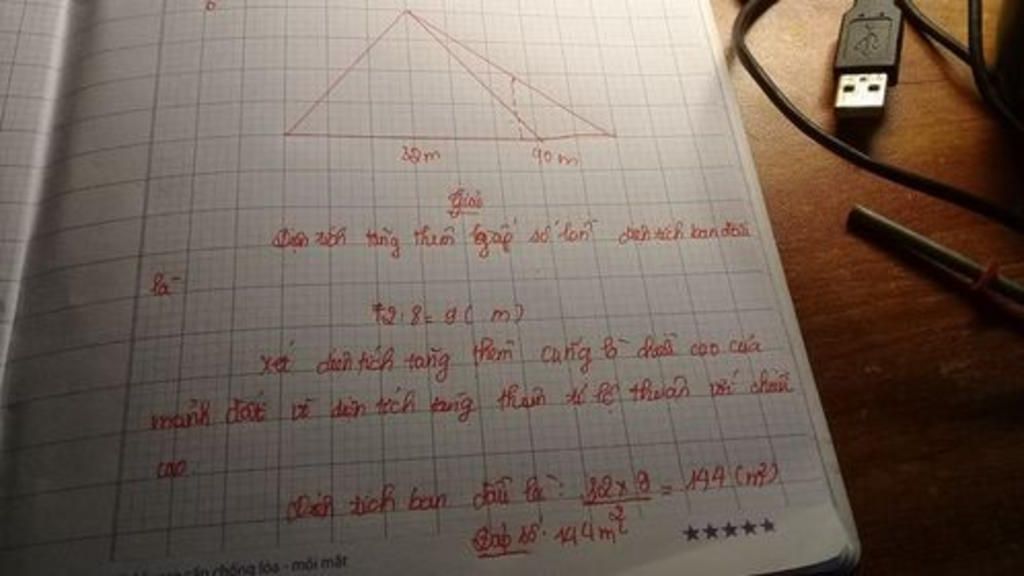 32m 90 m
Giải
Diện tích tăng thêm gấp số lần diện tích ban đầu
là
72 : 8 = 9 ( m)
Xét diện tích tăng thêm cũng là chiều cao của
mảnh đất vì diện tích tăng thêm tỉ lệ thuận với chiều
cao.
Diện tích ban đầu là: 32 x 9 = 144 (m²)
Đáp số: 144m²
chống lóa - mỏi mắt